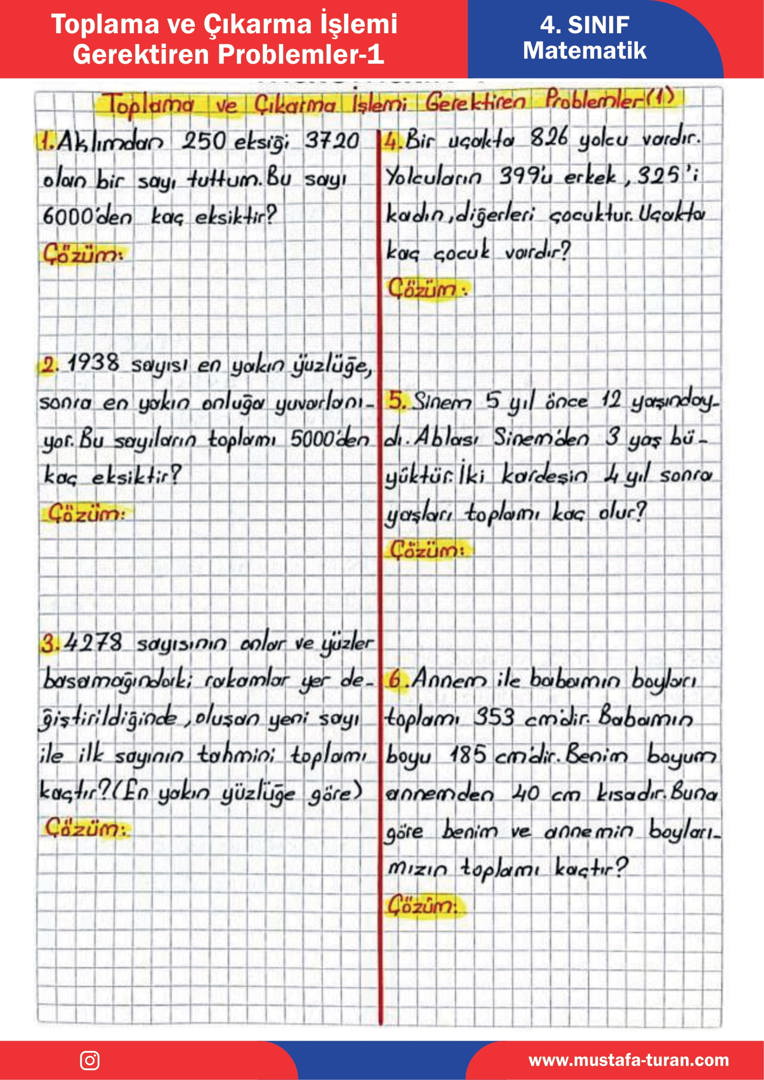 Toplama ve Çıkarma İşlemi
Gerektiren Problemler-1
4. SINIF
Matematik
Toplama ve Çıkarma İşlemi Gerektiren Problemler(1)
1.Aklımdan 250 eksiği 3720
olan bir sayı tuttum.Bu sayı
6000'den kaç eksiktir?
Çözüm:
2. 1938 sayısı en yakın yüzlüğe,
sonra en yakın onluğa yuvarlanı-
yor. Bu sayıların toplamı 5000'den
kaç eksiktir?
Çözüm:
3.4278 sayısının onlar ve yüzler
basamağındaki rakamlar yer de-
ğiştirildiğinde, oluşan yeni sayı
ile ilk sayının tahmini toplamı
kaçtır?(En yakın yüzlüğe göre)
Çözüm:
4.Bir uçakta 826 yolcu vardır.
Yolcuların 399'u erkek, 325'i
kadın,diğerleri çocuktur. Uçakta
kaç çocuk vardır?
Çözüm:
5. Sinem 5 yıl önce 12 yaşınday-
dı. Ablası Sinem'den 3 yaş bü-
yüktür. İki kardeşin 4 yıl sonra
yaşları toplamı kaç olur?
Çözüm:
6.Annem ile babamın boyları
toplamı 353 cm'dir. Babamın
boyu 185 cm'dir. Benim boyum
annemden 40 cm kısadır. Buna
göre benim ve annemin boyları-
mızın toplamı kaçtır?
Çözüm:
www.mustafa-turan.com